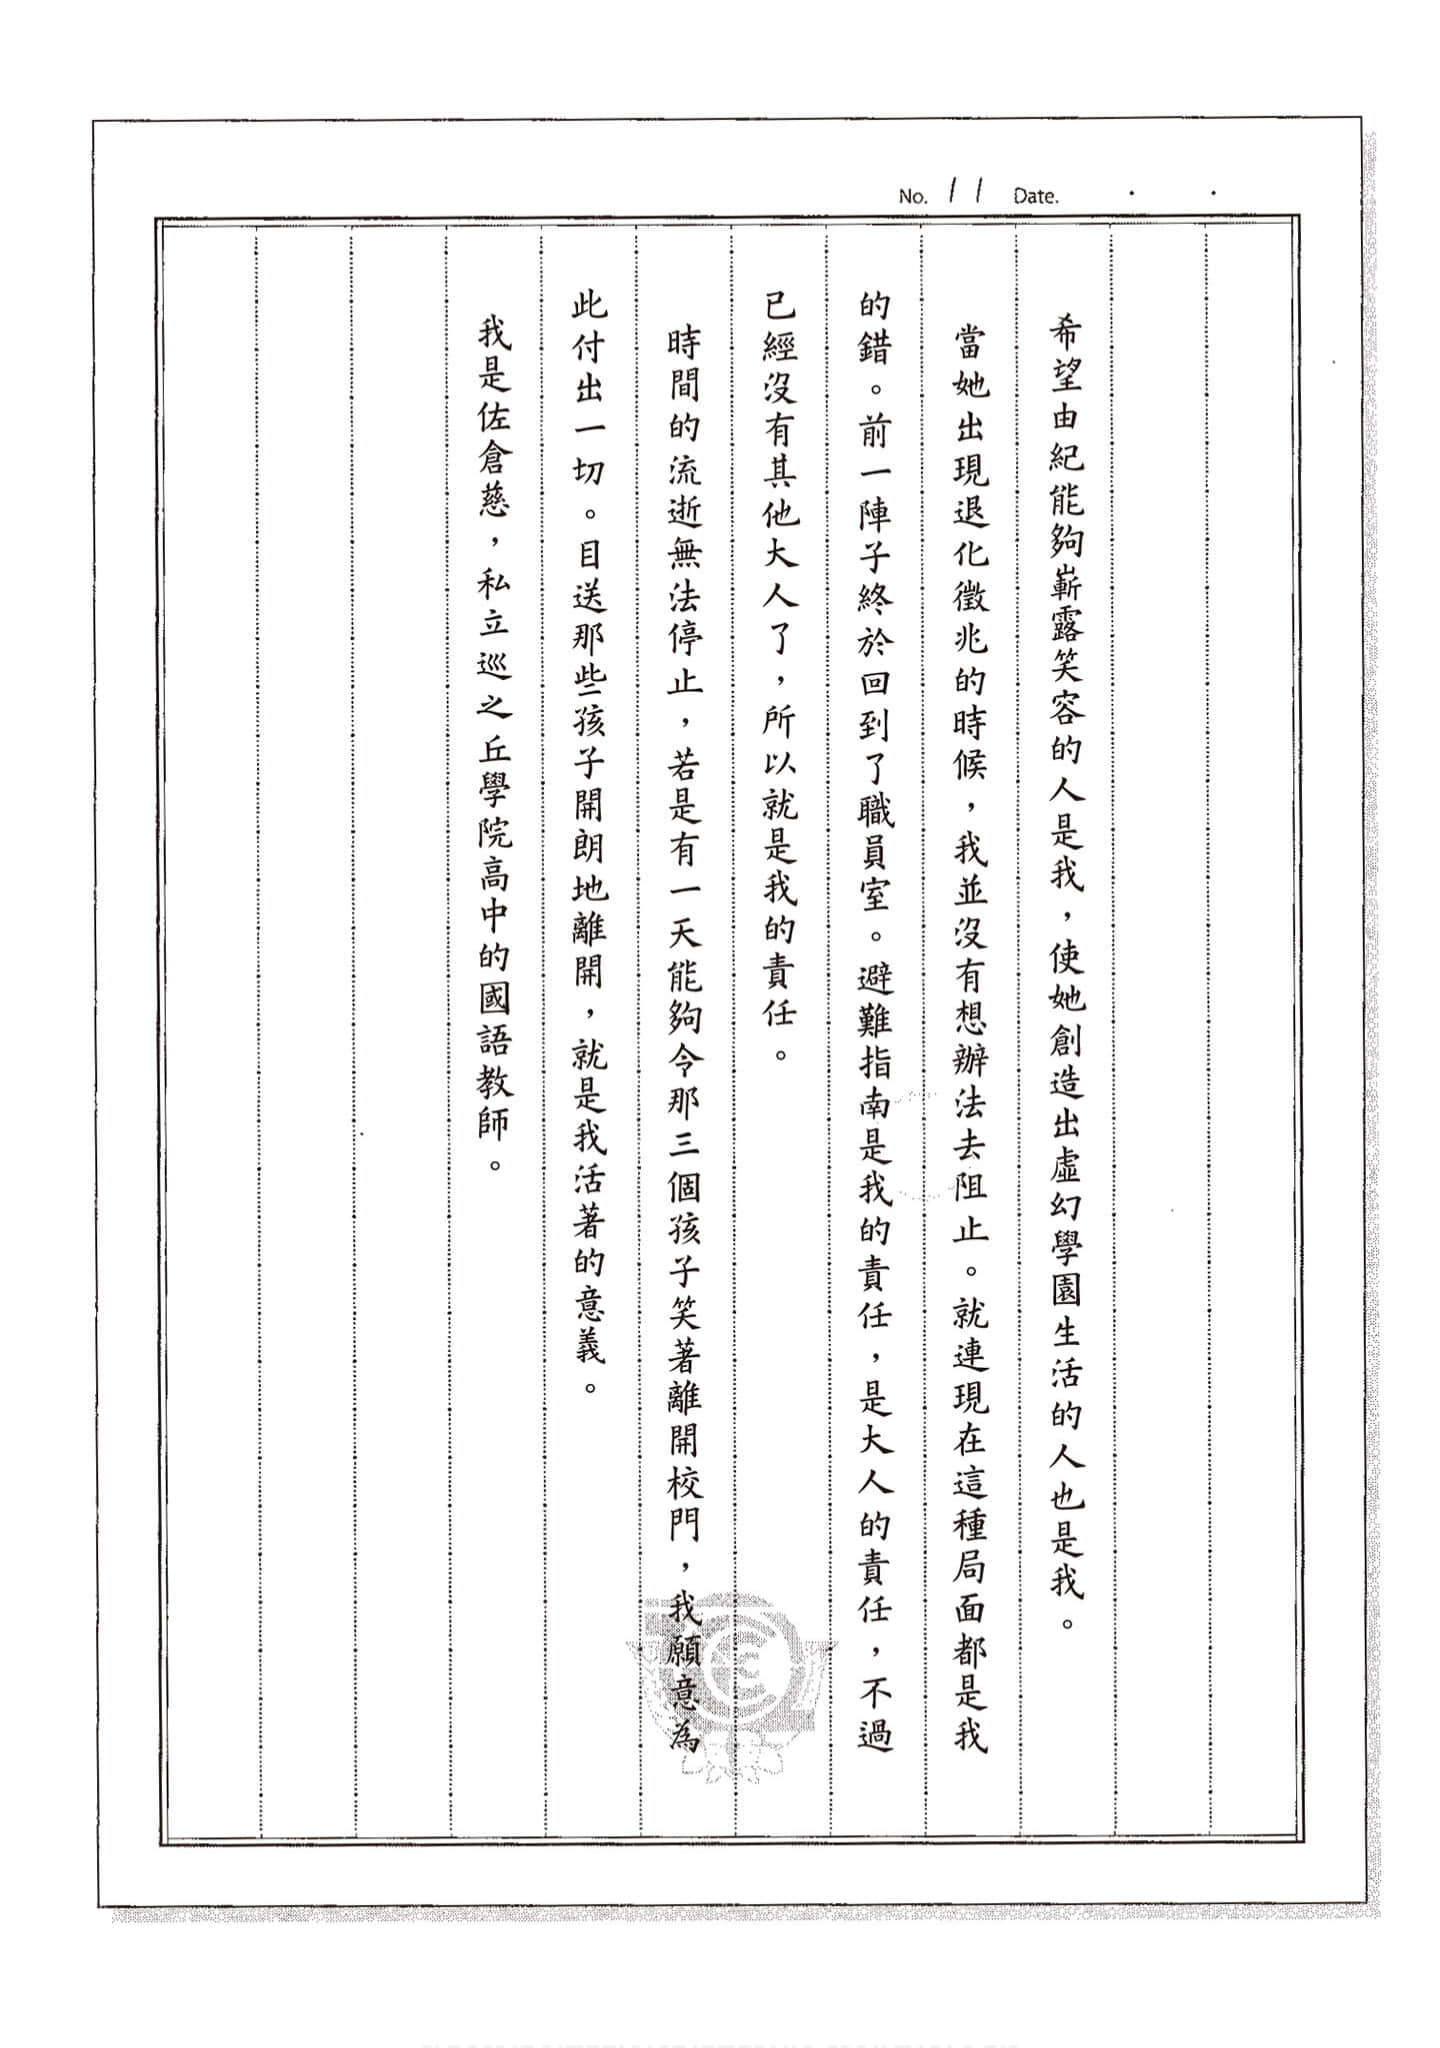 No. 11 Date. ・ ・
希望由紀能夠嶄露笑容的人是我，使她創造出虛幻學園生活的人也是我。
當她出現退化徵兆的時候，我並沒有想辦法去阻止。就連現在這種局面都是我
的錯。前一陣子終於回到了職員室。避難指南是我的責任，是大人的責任，不過
已經沒有其他大人了，所以就是我的責任。
時間的流逝無法停止，若是有一天能夠令那三個孩子笑著離開校門，我願意為
此付出一切。目送那些孩子開朗地離開，就是我活著的意義。
我是佐倉慈，私立巡之丘學院高中的國語教師。